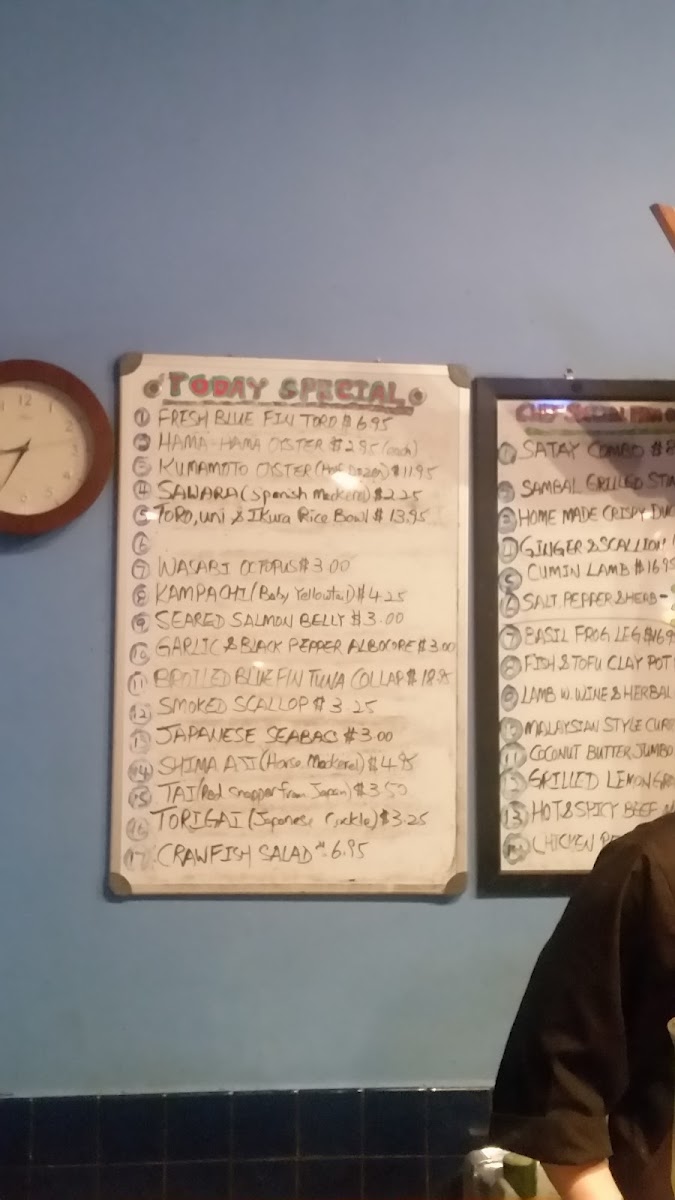 TODAY SPECIAL
1 FRESH BLUE FIN TORO $6.95
2 HAMA-HAMA OYSTER $2.95 (each)
3 KUMAMOTO OYSTER (Half Dozen) $11.95
4 SAWARA (Spanish Mackerel) $2.25
5 TORO, uni & Ikura Rice Bowl $13.95
6
7 WASABI OCTOPUS $3.00
8 KAMPACHI (Baby Yellowtail) $4.25
9 SEARED SALMON BELLY $3.00
10 GARLIC & BLACK PEPPER ALBOCORE $3.00
11 BROILED BLUE FIN TUNA COLLAR $18.95
12 SMOKED SCALLOP $3.25
13 JAPANESE SEABAS $3.00
14 SHIMA AJI (Horse Mackerel) $4.95
15 TAI (Red snapper from Japan) $3.50
16 TORIGAI (Japanese Cockle) $3.25
17 CRAWFISH SALAD $6.95
1 SATAY COMBO $8
2 SAMBAL GRILLED
3 HOME MADE CRISPY DUC
4 GINGER & SCALLION
5 CUMIN LAMB $16.95
6 SALT, PEPPER & HERB-
7 BASIL FROG LEG $16.9
8 FISH & TOFU CLAY POT
9 LAMB W. WINE & HERBAL
10 MALAYSIAN STYLE CUR
11 COCONUT BUTTER JUMBO
12 GRILLED LEMONGRA
13 HOT & SPICY BEEF
14 CHICKEN
12
1
2
3
4
5
6